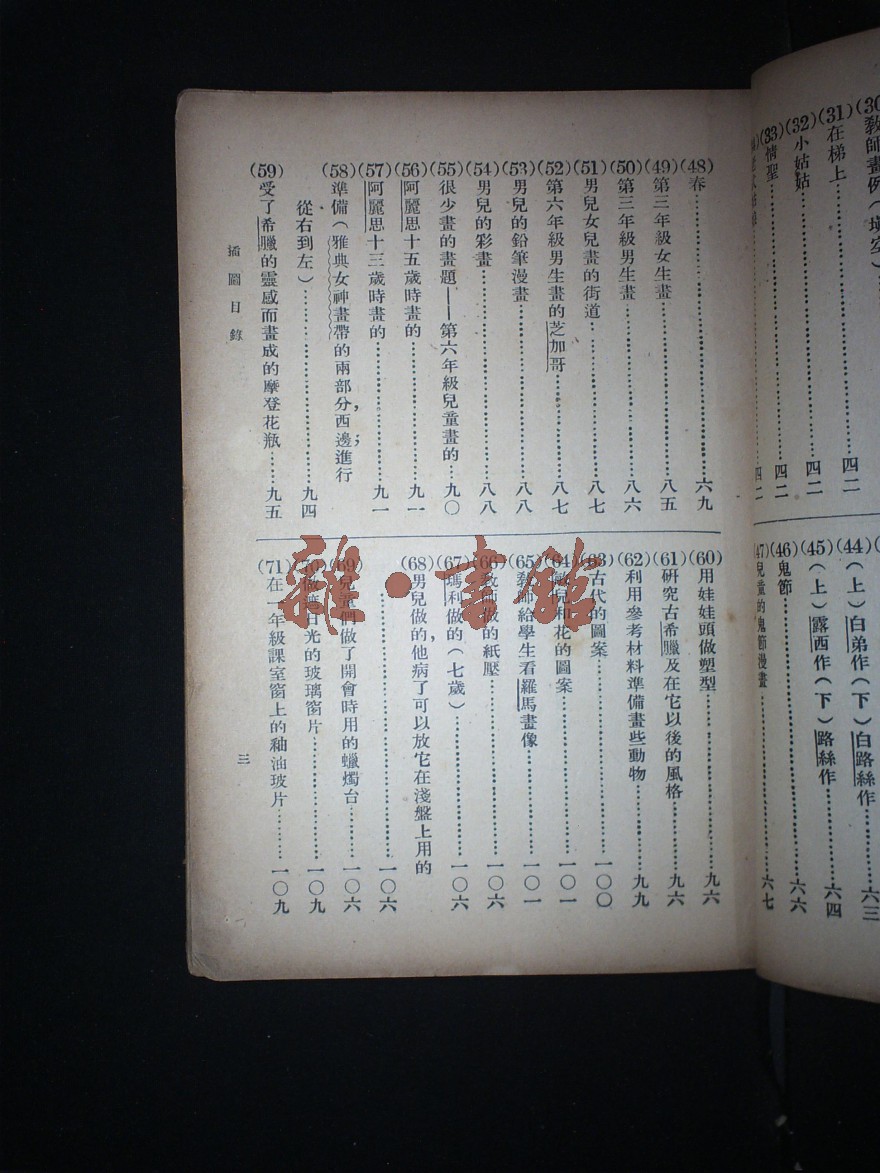 (30)教師畫例(填空)
(31)在梯上……四二
(32)小姑姑……四二
(33)情聖……四二
四二
(44)(上)白弟作(下)白路絲作……六三
(45)(上)露西作(下)路絲作……六四
(46)鬼節……六六
(47)兒童的鬼節漫畫……六七
(48)春……六九
(49)第三年級女生畫……八五
(50)第三年級男生畫……八六
(51)男兒女兒畫的街道……八七
(52)第六年級男生畫的芝加哥……八七
(53)男兒的鉛筆漫畫……八八
(54)男兒的彩畫……八八
(55)很少畫的畫題——第六年級兒童畫的……九〇
(56)阿麗思十五歲時畫的……九一
(57)阿麗思十三歲時畫的……九一
(58)準備(雅典女神畫帶的兩部分,西邊進行;
從右到左)……九四
(59)受了希臘的靈感而畫成的摩登花瓶……九五
(60)用娃娃頭做塑型……九六
(61)研究古希臘及在它以後的風格……九六
(62)利用參考材料準備畫些動物……九九
(63)古代的圖案……一〇〇
(64)兒和花的圖案……一〇一
(65)教師給學生看羅馬畫像……一〇一
(66)教師做的紙壓……一〇六
(67)瑪利做的(七歲)……一〇六
(68)男兒做的,他病了可以放它在淺盤上用的
……一〇六
(69)兒童們做了開會時用的蠟燭台……一〇六
(70)做濾日光的玻璃窗片……一〇九
(71)在一年級課室窗上的釉油玻片……一〇九
插圖目錄
三
雜·書館